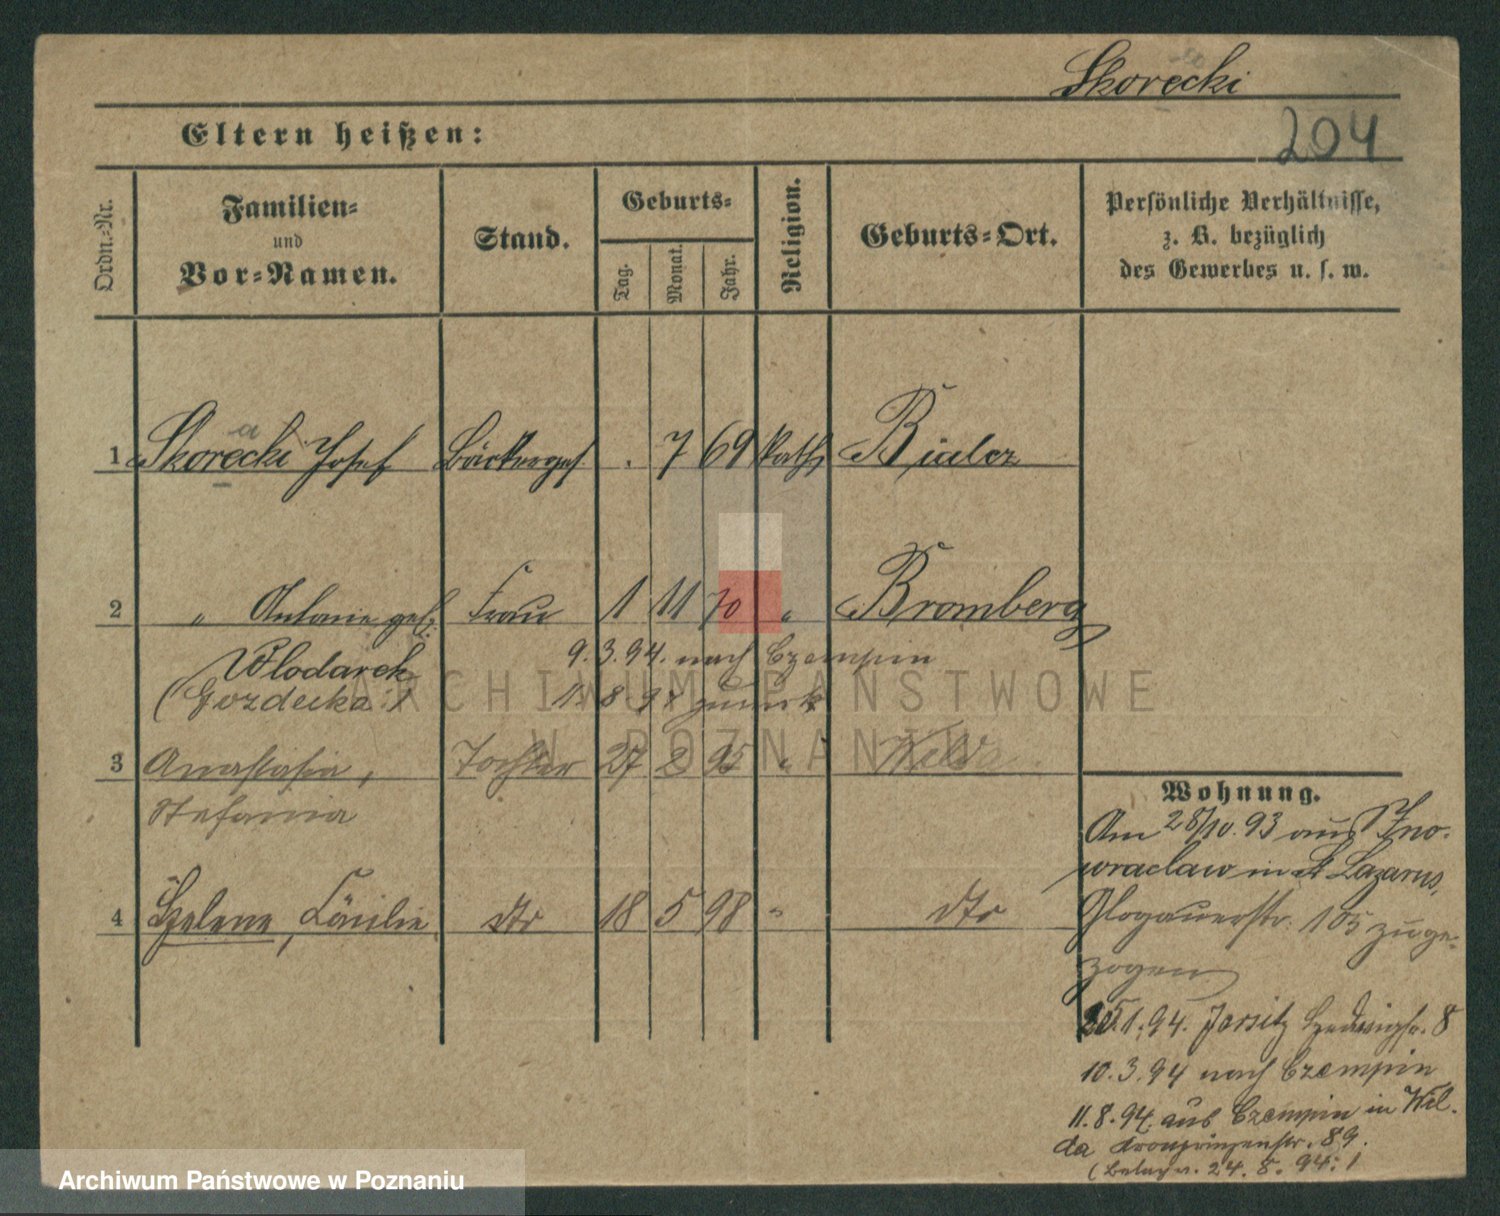 Skorecki
204
Eltern heißen:
Ordn.-Nr.
Familien-
und
Vor-Namen.
Stand.
Geburts-
Tag.
Monat.
Jahr.
Religion.
Geburts-Ort.
Persönliche Verhältnisse,
z. B. bezüglich
des Gewerbes u. s. w.
a
1 Skorecki Josef Bäckerges. 7 69 kath
2 " Antonie geb. Frau 1 11 70 " Bromberg
Wlodarek 9.3.94. nach Czempin
(Gozdecka) 11.8.94 zurück
3 Anastasia, Tochter 27 2 95 " Wilda
Stefania
4 Helene, Cäcilie dto 18 5 98 " dto
Wohnung.
Am 28/10.93 aus Ino-
wraclaw in St Lazarus,
Glogauerstr. 105 zuge-
zogen
1.94. Jersitz Hedwigstr. 8
10.3.94 nach Czempin
11.8.94. aus Czempin in Wil-
da Kronprinzenstr. 89.
24.8.94.
ARCHIWUM PAŃSTWOWE
W POZNANIU
Archiwum Państwowe w Poznaniu